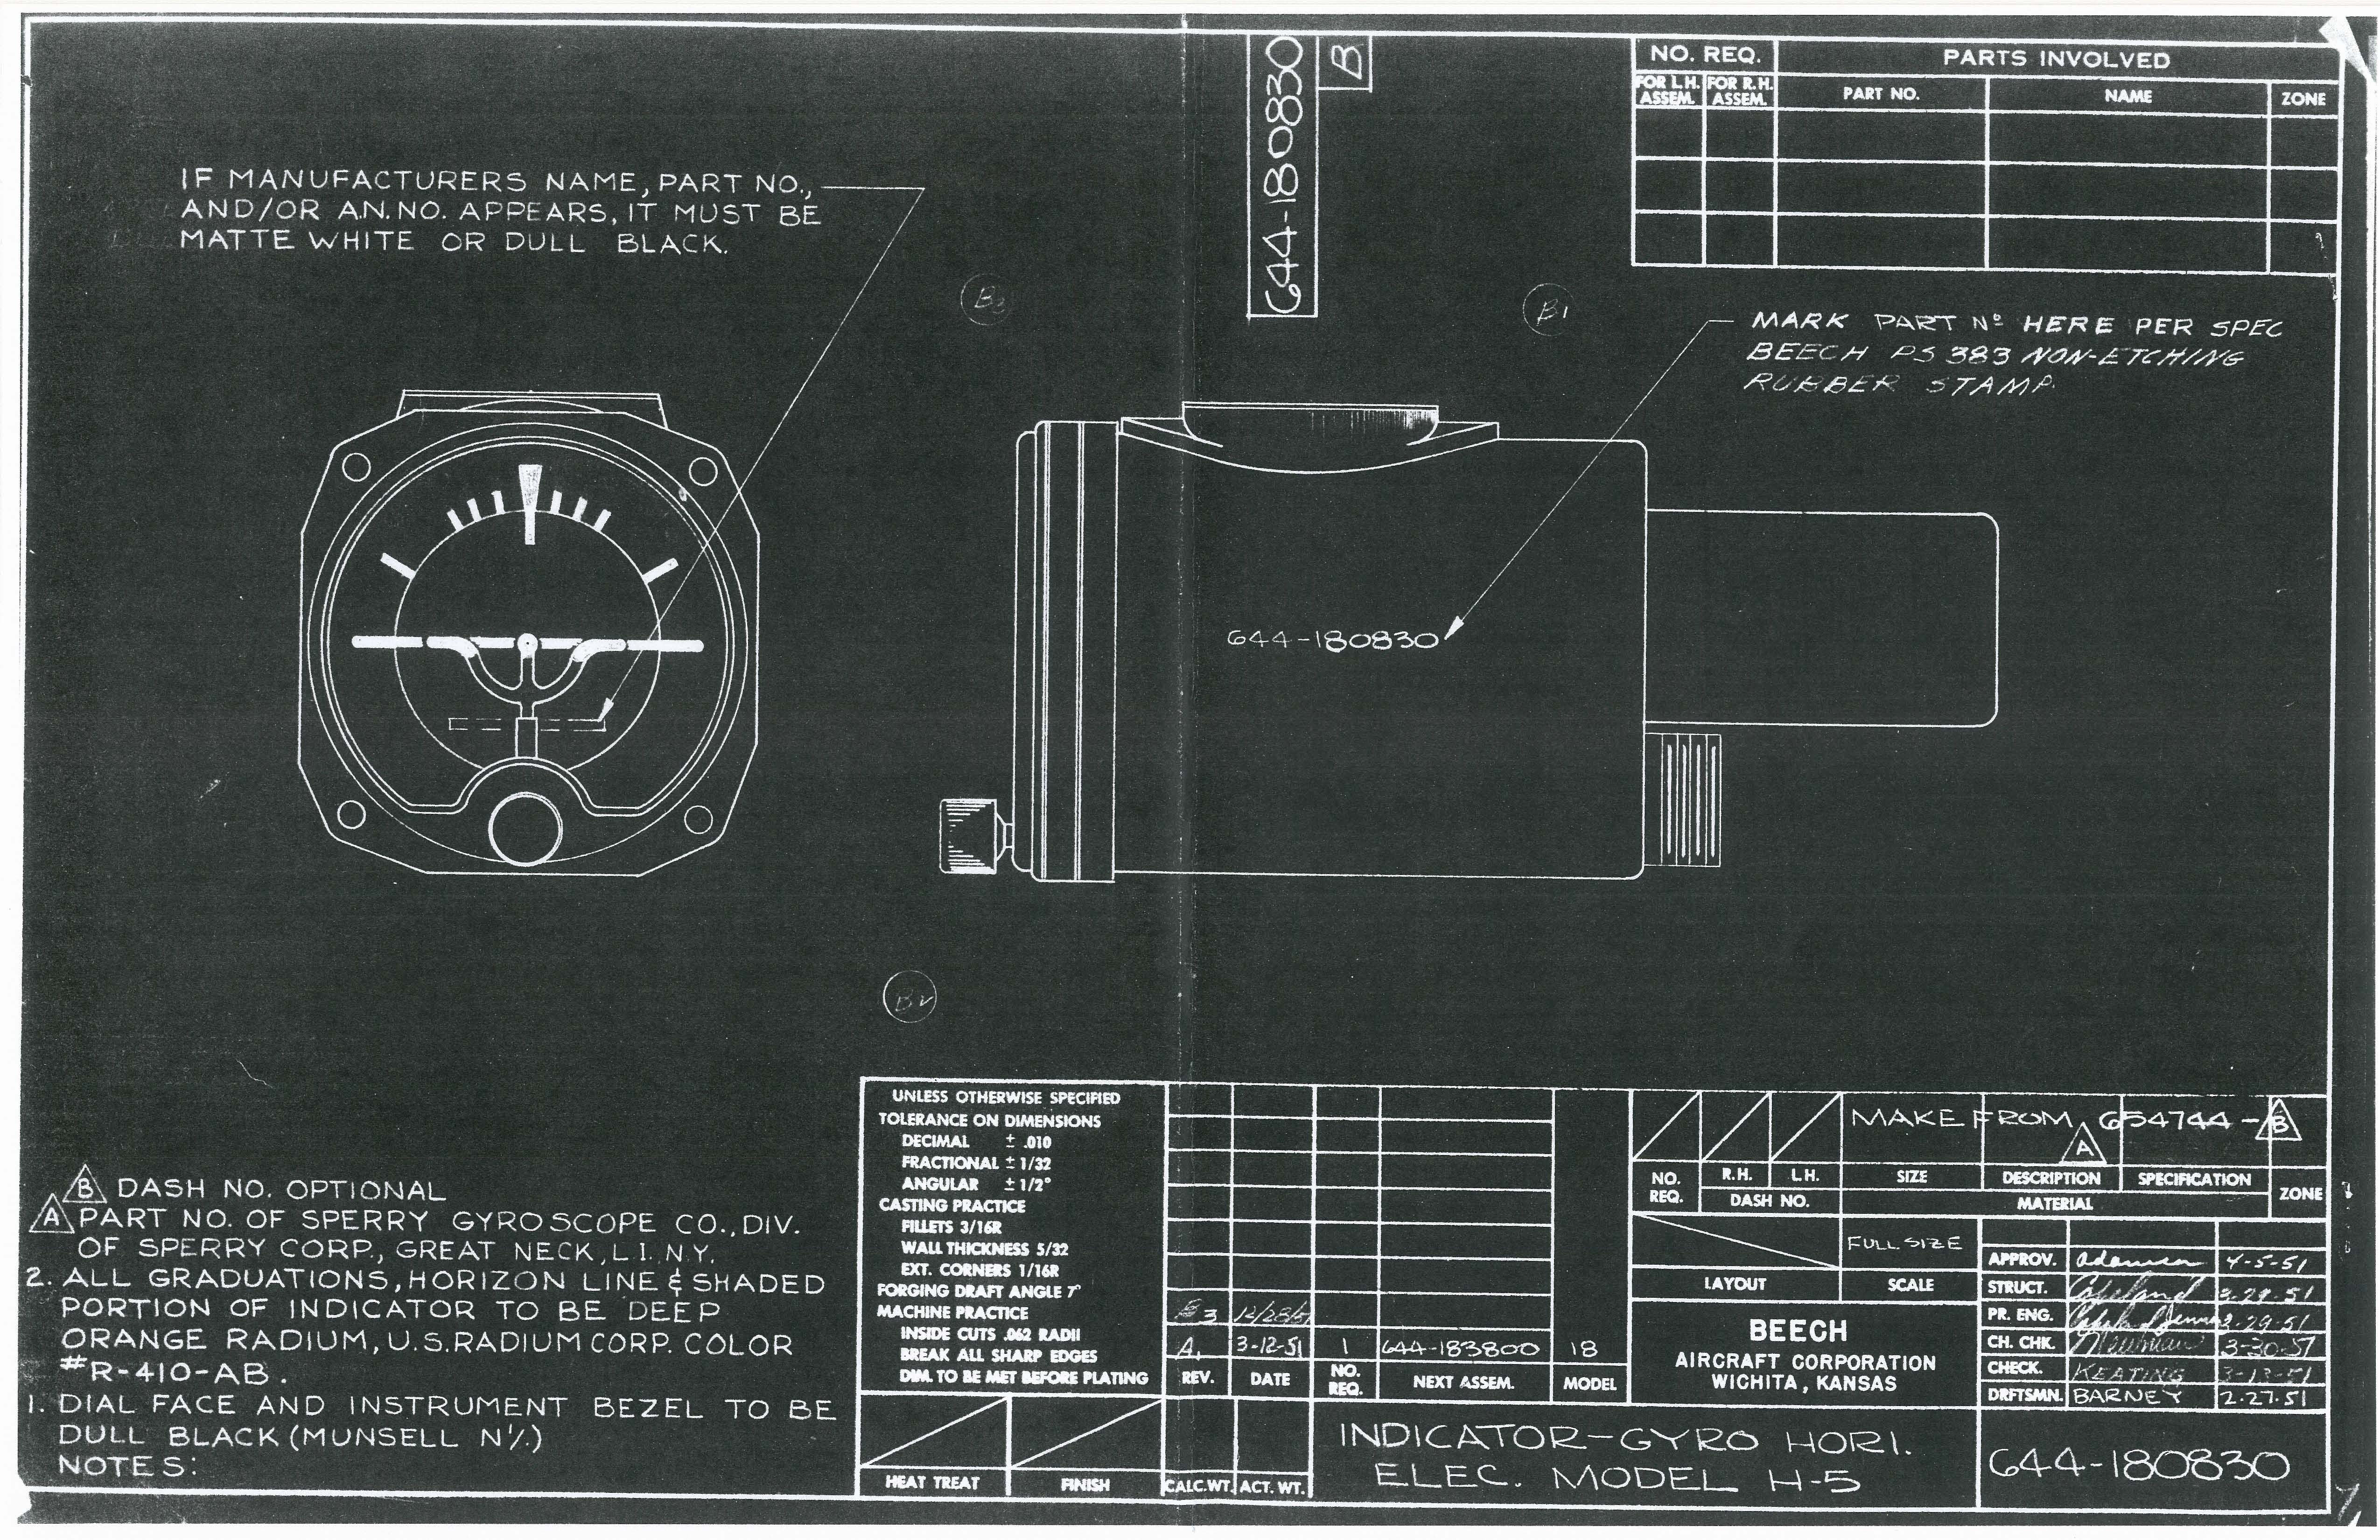 644-180830
B
NO. REQ.
PARTS INVOLVED
FOR L.H. ASSEM.
FOR R.H. ASSEM.
PART NO.
NAME
ZONE
IF MANUFACTURERS NAME, PART NO.,
AND/OR A.N. NO. APPEARS, IT MUST BE
MATTE WHITE OR DULL BLACK.
B3
B1
MARK PART Nº HERE PER SPEC
BEECH PS 383 NON-ETCHING
RUBBER STAMP.
644-180830
B2
B DASH NO. OPTIONAL
A PART NO. OF SPERRY GYROSCOPE CO., DIV.
OF SPERRY CORP., GREAT NECK, L.I. N.Y.
2. ALL GRADUATIONS, HORIZON LINE & SHADED
PORTION OF INDICATOR TO BE DEEP
ORANGE RADIUM, U.S. RADIUM CORP. COLOR
#R-410-AB.
1. DIAL FACE AND INSTRUMENT BEZEL TO BE
DULL BLACK (MUNSELL N1/.)
NOTES:
UNLESS OTHERWISE SPECIFIED
TOLERANCE ON DIMENSIONS
DECIMAL ± .010
FRACTIONAL ± 1/32
ANGULAR ± 1/2°
CASTING PRACTICE
FILLETS 3/16R
WALL THICKNESS 5/32
EXT. CORNERS 1/16R
FORGING DRAFT ANGLE 7°
MACHINE PRACTICE
INSIDE CUTS .062 RADII
BREAK ALL SHARP EDGES
DIM. TO BE MET BEFORE PLATING
HEAT TREAT
FINISH
CALC. WT.
ACT. WT.
A. 3-12-51 1 644-183800 18
REV.
DATE
NO. REQ.
NEXT ASSEM.
MODEL
MAKE FROM 654744-B
A
NO. REQ.
R.H.
L.H.
DASH NO.
SIZE
DESCRIPTION
SPECIFICATION
MATERIAL
ZONE
FULL SIZE
LAYOUT
SCALE
APPROV. Adamson 4-5-51
STRUCT. Copeland 3-29-51
PR. ENG. 3-29-51
CH. CHK. Newman 3-30-51
CHECK. KEATING 3-13-51
DRFTSMN. BARNEY 2-27-51
BEECH
AIRCRAFT CORPORATION
WICHITA, KANSAS
INDICATOR-GYRO HORI.
ELEC. MODEL H-5
644-180830